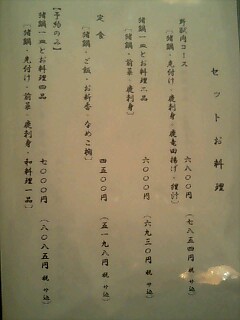 セットお料理
野獣肉コース 六八〇〇(七八五四税サ込)
〔猪鍋・先付け・鹿刺身・鹿竜田揚げ・猪汁〕
猪鍋一皿とお料理二品 六〇〇〇(六九三〇税サ込)
〔猪鍋・前菜・鹿刺身〕
定食 四五〇〇(五一九八税サ込)
〔猪鍋・ご飯・お新香・なめこ椀〕
【予約のみ】
猪鍋一皿とお料理四品 七〇〇〇(八〇八五税サ込)
〔猪鍋・先付け・前菜・鹿刺身・和料理一品〕